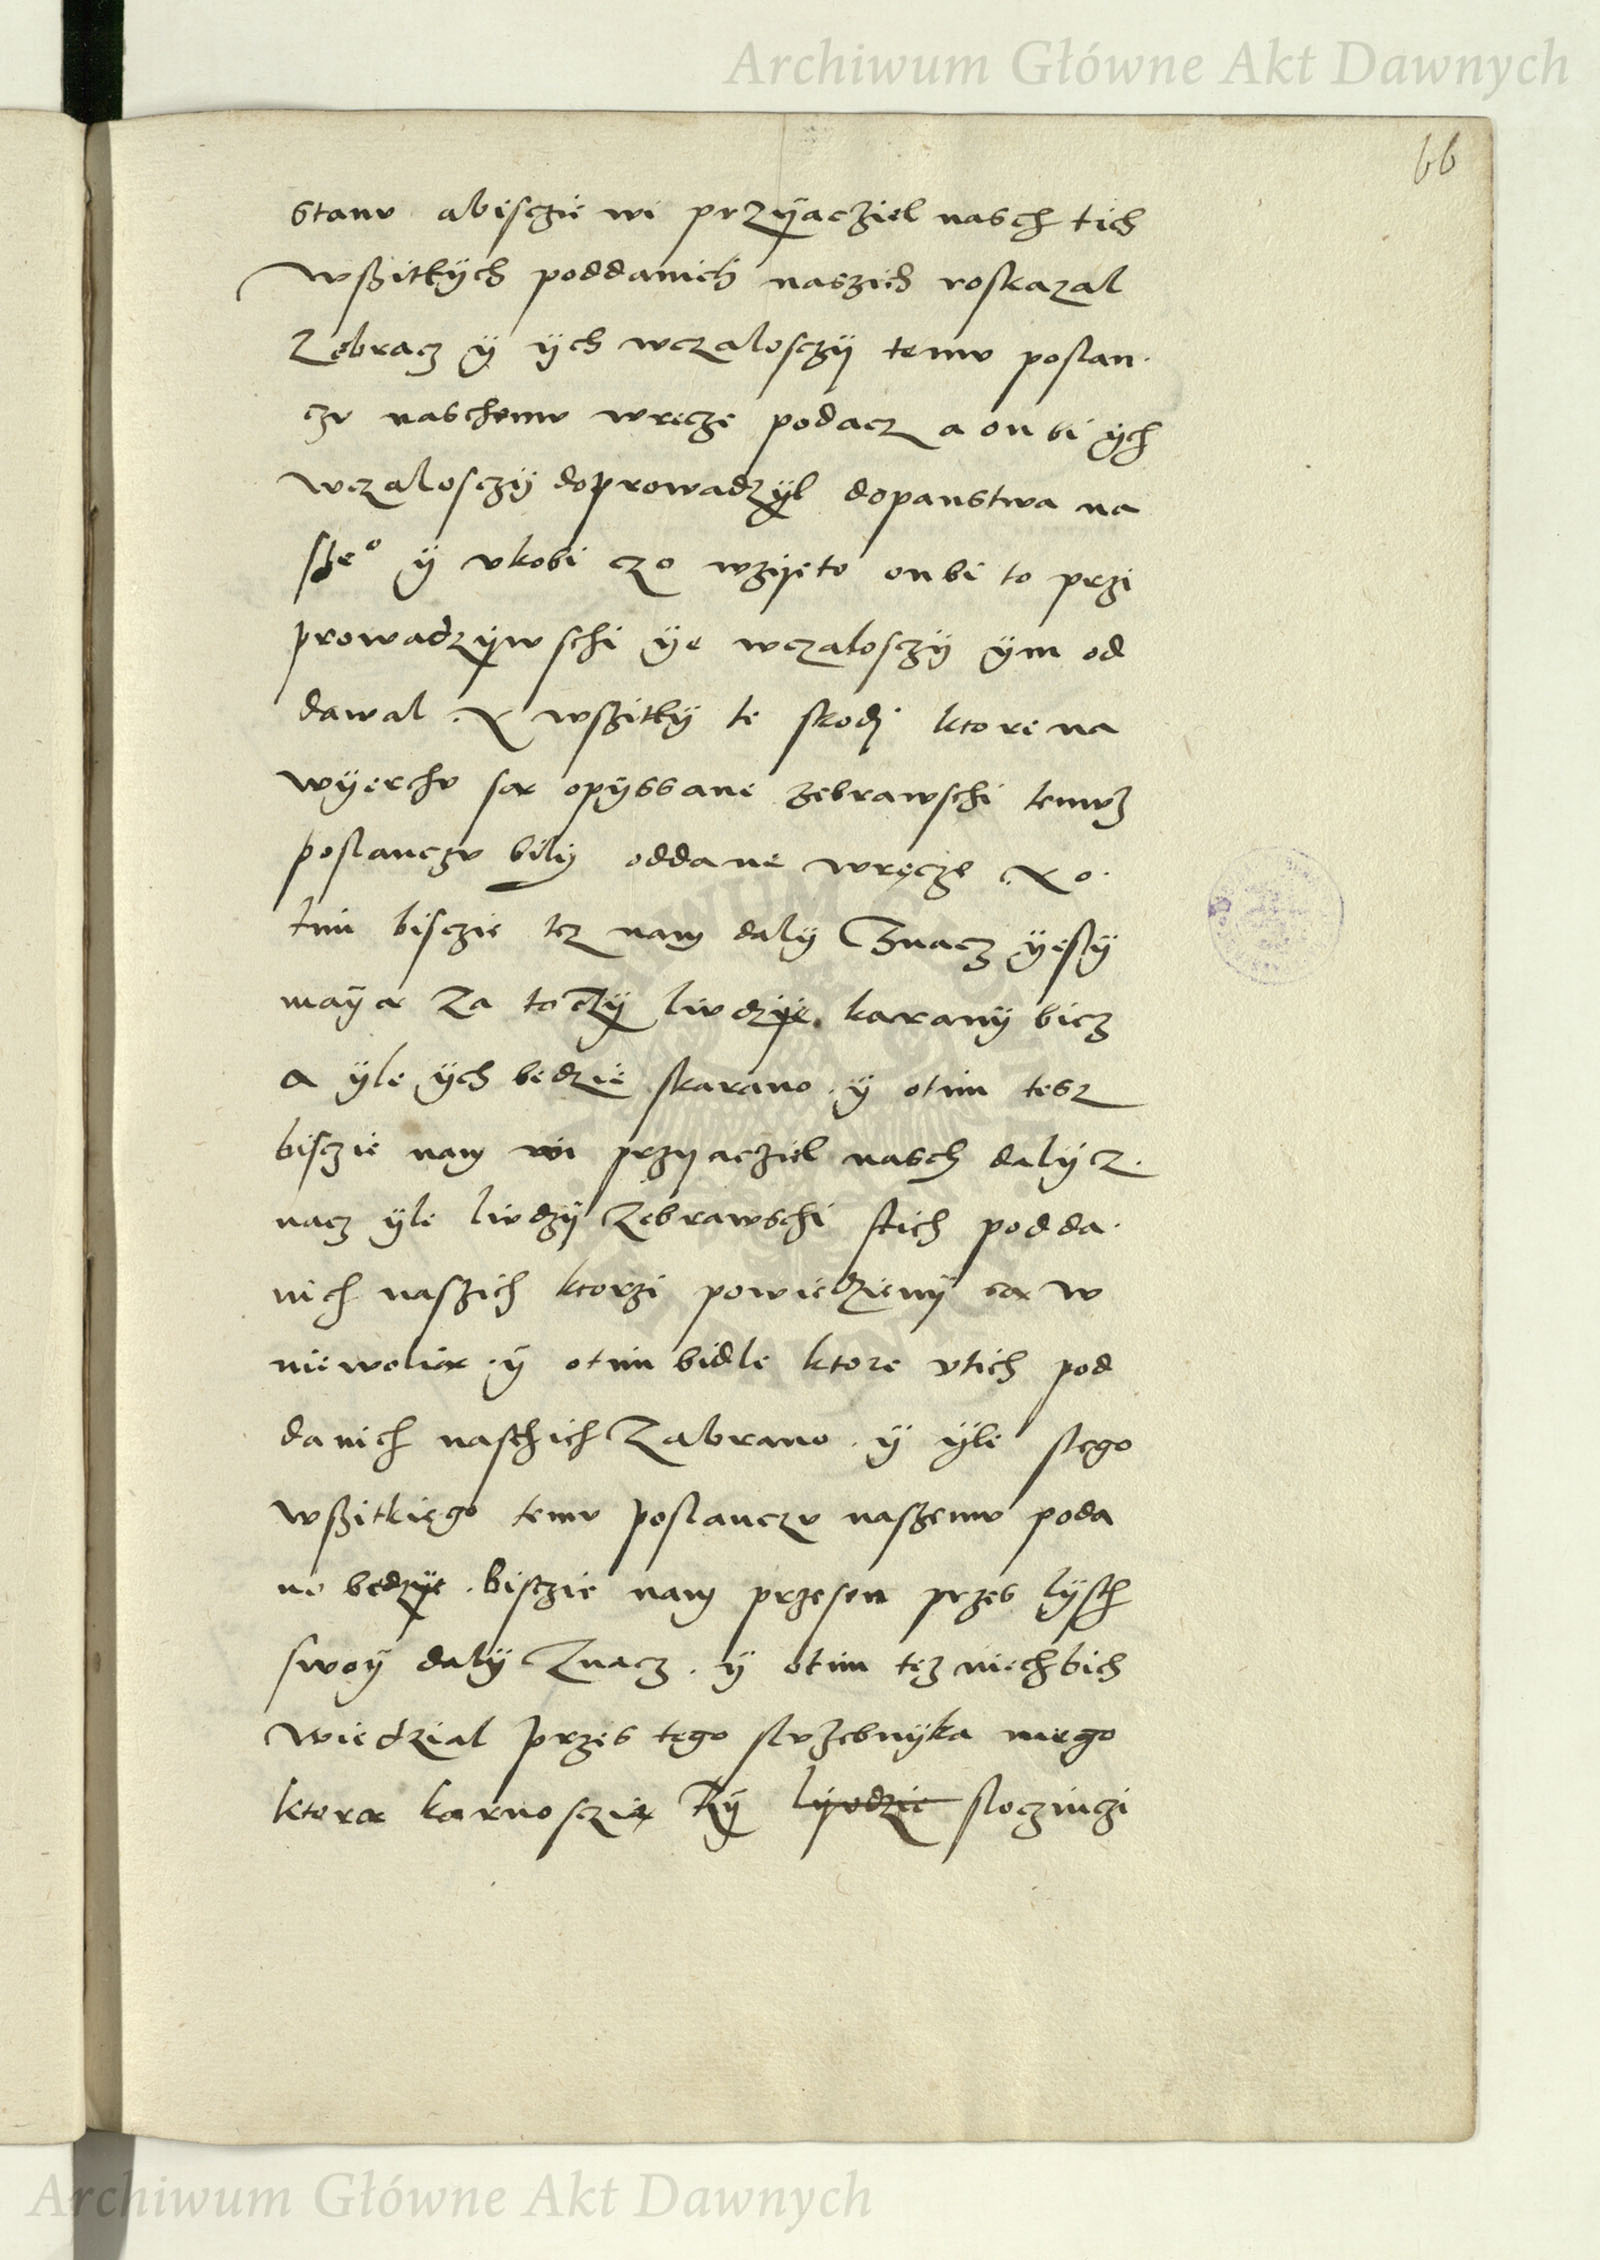 Archiwum Główne Akt Dawnych
66
stanv abisczie wi przÿacziel nasch tich
wszitkÿch poddanich naszich roskazal
zebracz ÿ ÿch wczalosczÿ temv poslan
czv naschemv wręcze podacz a on bi ÿch
wczalosczÿ doprowadzÿl dopanstwa na
sze° ÿ vkobi czo wzijeto onbi to przi
prowadzÿwschi ÿe wczalosczÿ ÿm od
dawal. X wszitkÿ te skodi ktore na
wÿerchv sax opÿssane zebrawschi temvz
poslanczv bilÿ oddane wręcze. X o
tim bisczie tez nam dalÿ znacz ÿeslÿ
maÿa za to czÿ livdzÿe karanÿ bicz
a ÿle ÿch bedzie skarano. ÿ otim tesz
bisczie nam wi przyacziel nasch dalÿ z
nacz ÿle livdzÿ zebrawschi stich podda
nich naszich ktorzi powiedzienÿ sax w
niewoliax. ÿ otim bidle ktore vtich pod
danich naschich zabrano. ÿ ÿle stego
wszitkięgo temv poslanczv naszemv poda
no bedzÿe. bisczie nam przesen przes lÿsth
swoÿ dalÿ znacz. ÿ otim tez niechbich
wiedzial przes tęgo slvzebnÿka mego
ktorax karnosczia czÿ lÿvdzie sloczinczi
Archiwum Główne Akt Dawnych